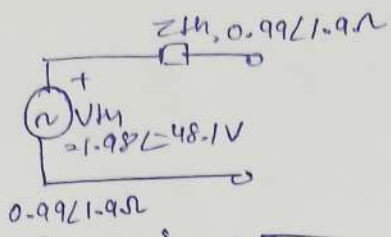 Zth, 0.99∠1.9Ω
+
~ Vth
=1.98∠-48.1V
0.99∠1.9Ω